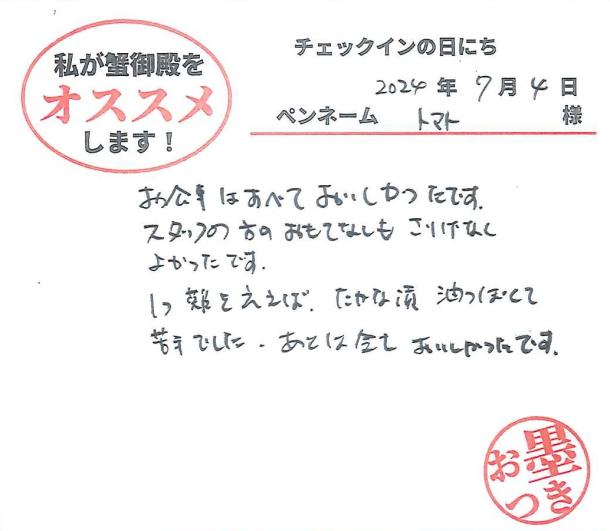 私が蟹御殿を
オススメ
します！
チェックインの日にち
2024年 7月 4日
ペンネーム トマト 様
お食事はすべておいしかったです。
スタッフの方のおもてなしも さりげなく
よかったです。
1つ 難をええば、たかな漬 油っぽくて
苦手でした。あとは全ておいしかったです。
お墨
つき